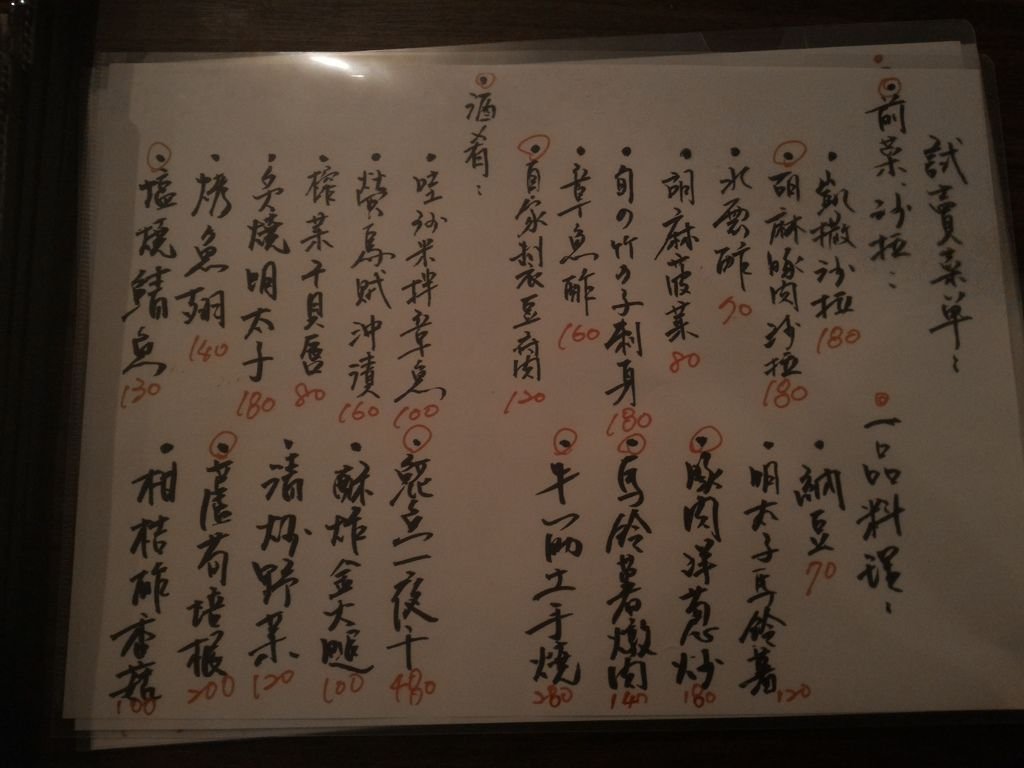 試賣菜單：
前菜、沙拉：
凱撒沙拉 180
胡麻豚肉沙拉 180
水雲酢 70
胡麻菠菜 80
旬の竹の子刺身 180
章魚酢 160
自家制衣豆腐 120
一品料理：
納豆 70
明太子馬鈴薯 120
豚肉洋蔥炒 180
馬鈴薯燉肉 140
牛筋土手燒 280
酒肴：
哇沙米拌章魚 100
螢烏賊沖漬 160
榨菜干貝唇 80
炙燒明太子 180
烤魚翅 140
塩燒鯖魚 130
花魚一夜干 480
酥炸金大腿 100
清炒野菜 120
蘆荀培根 200
柑桔酢香菇 100